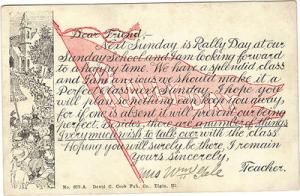 Dear Friend:-
Next Sunday is Rally Day at our
Sunday School and I am looking forward
to a happy time. We have a splendid class
and I am anxious we should make it a
Perfect Class next Sunday. I hope you
will plan so nothing can keep you away,
for if one is absent it will prevent our being
perfect. Besides, there are a number of things
I very much wish to talk over with the class.
Hoping you will surely be there, I remain
Yours sincerely,
Teacher.
No. 657-A. David C. Cook Pub. Co., Elgin, Ill.